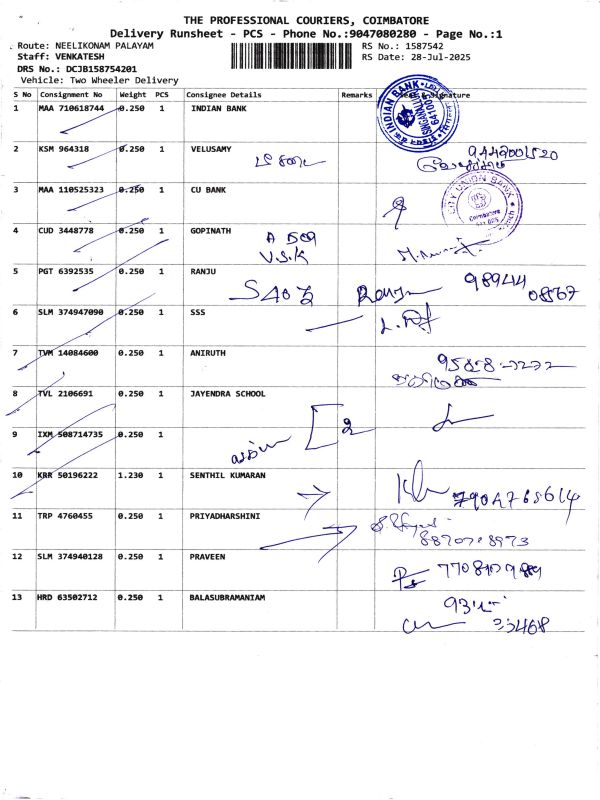 THE PROFESSIONAL COURIERS, COIMBATORE
Delivery Runsheet - PCS - Phone No.:9047080280 - Page No.:1
Route: NEELIKONAM PALAYAM RS No.: 1587542
Staff: VENKATESH RS Date: 28-Jul-2025
DRS No.: DCJB158754201
Vehicle: Two Wheeler Delivery
S No Consignment No Weight PCS Consignee Details Remarks Signature
1 MAA 710618744 0.250 1 INDIAN BANK
INDIAN BANK
2 KSM 964318 0.250 1 VELUSAMY
3 MAA 110525323 0.250 1 CU BANK
CITY UNION BANK
Coimbatore
4 CUD 3448778 0.250 1 GOPINATH A 509
V.S.K
5 PGT 6392535 0.250 1 RANJU 98944
08567
6 SLM 374947090 0.250 1 SSS
7 TVM 14084600 0.250 1 ANIRUTH
8 TVL 2106691 0.250 1 JAYENDRA SCHOOL
9 IXM 508714735 0.250 1
10 KRR 50196222 1.230 1 SENTHIL KUMARAN 7904768614
11 TRP 4760455 0.250 1 PRIYADHARSHINI
12 SLM 374940128 0.250 1 PRAVEEN
13 HRD 63502712 0.250 1 BALASUBRAMANIAM